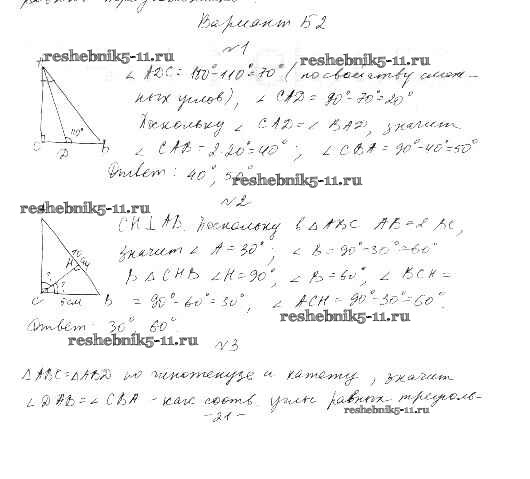 Вариант Б2
№1
reshebnik5-11.ru
reshebnik5-11.ru
∠ADC = 180°-110°=70° (по свойству смеж-
ных углов), ∠CAD = 90°-70°=20°
Поскольку ∠CAD = ∠BAD, значит
∠CAB = 2·20°=40°; ∠CBA = 90°-40°=50°
110°
C D B
Ответ: 40°, 50°
reshebnik5-11.ru
№2
reshebnik5-11.ru
CH⊥AB. Поскольку в △ABC AB=2BC,
значит ∠A=30°; ∠B=90°-30°=60°
В △CHB ∠H=90°, ∠B=60°, ∠BCH=
= 90°-60°=30°, ∠ACH=90°-30°=60°.
10см
H
? ?
C 5см B
reshebnik5-11.ru
Ответ: 30°, 60°.
reshebnik5-11.ru
№3
△ABC=△ABD по гипотенузе и катету, значит
∠DAB=∠CBA - как соотв. углы равных треуголь-
reshebnik5-11.ru
-21-